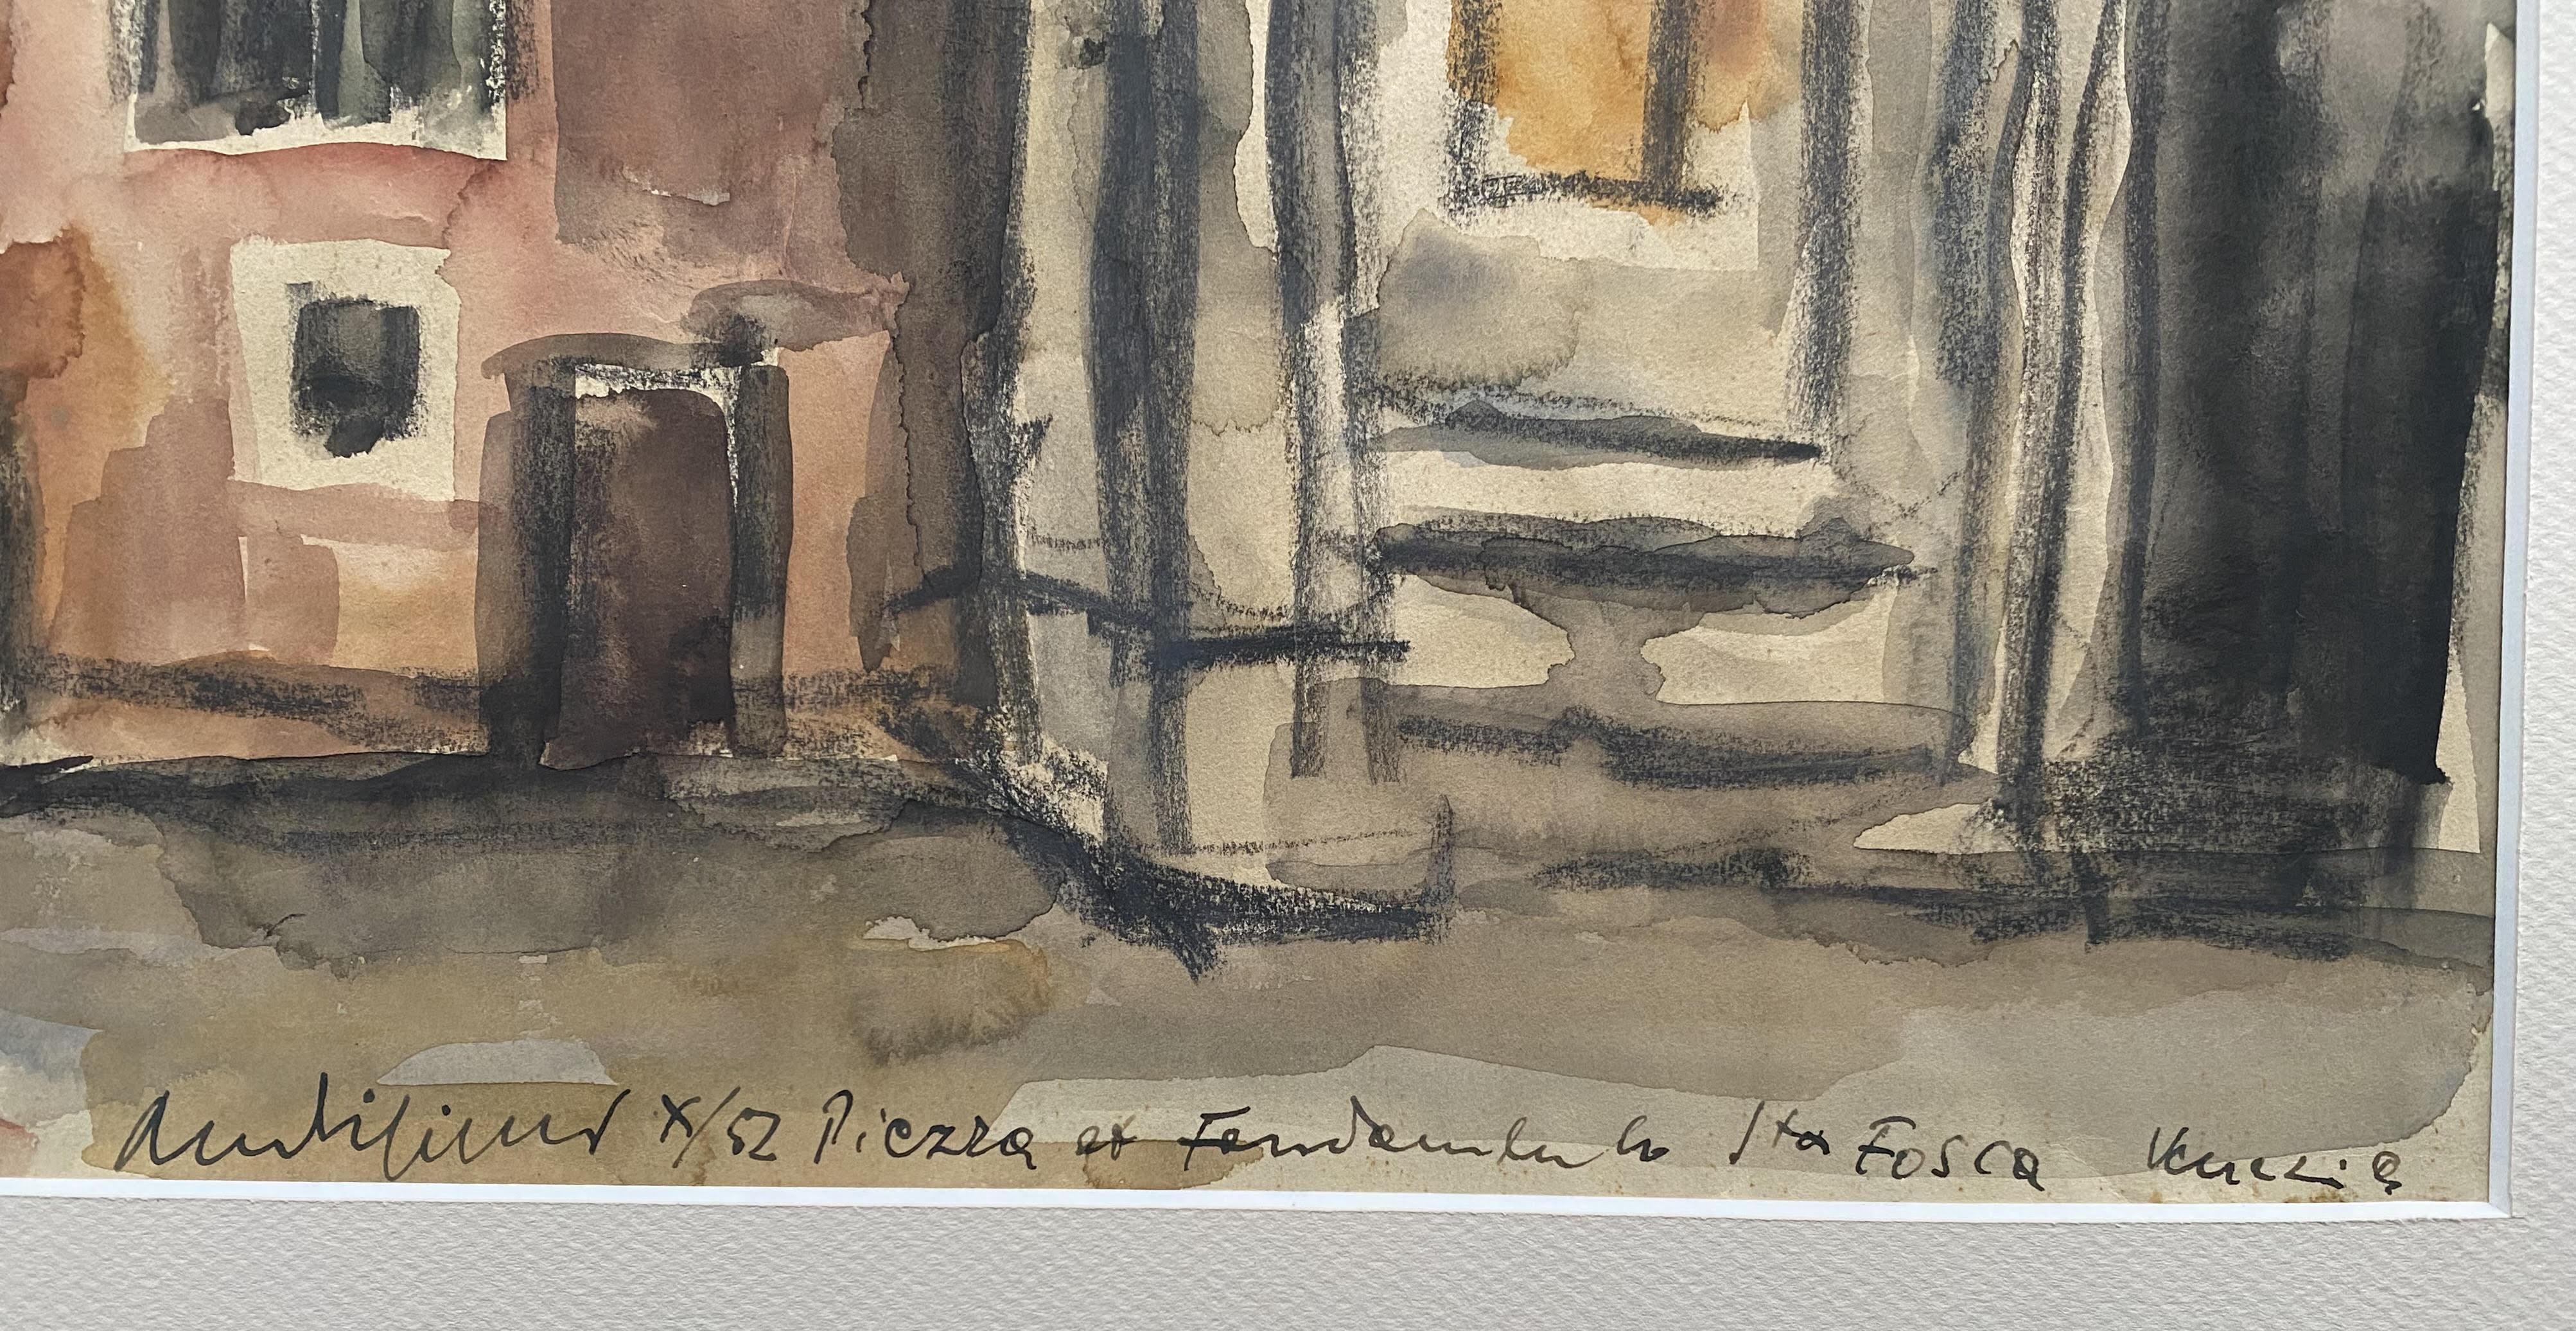 X/52 Piazza et Fondamenta Sta Fosca Venezia